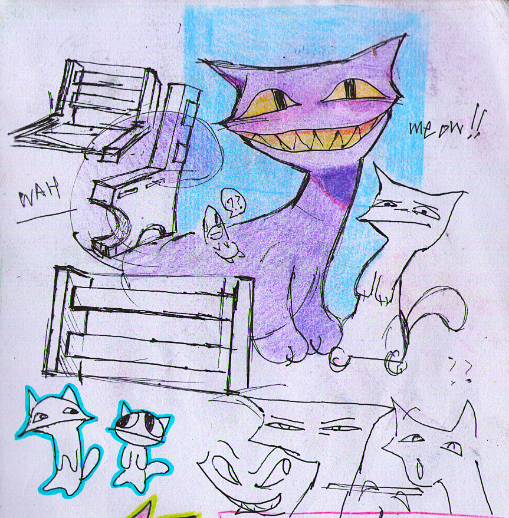 meow!!
WAH
??
??